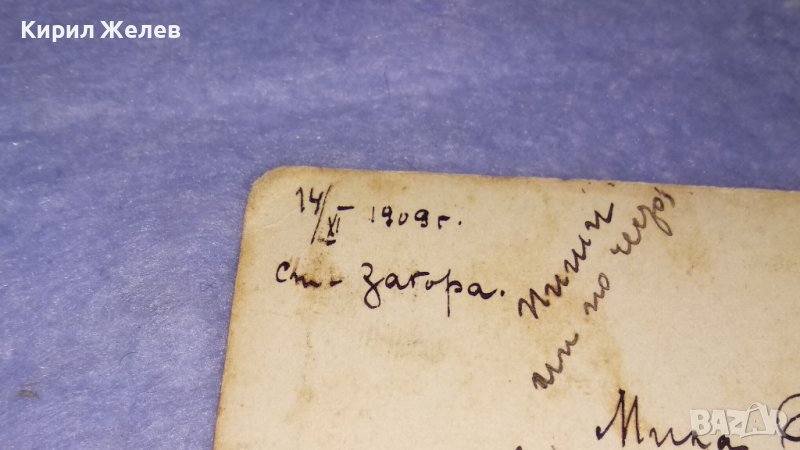 Кирил Желев
14/XI 1909 г.
Ст- Загора.
пиши
ми по че
Мика
BAZAR